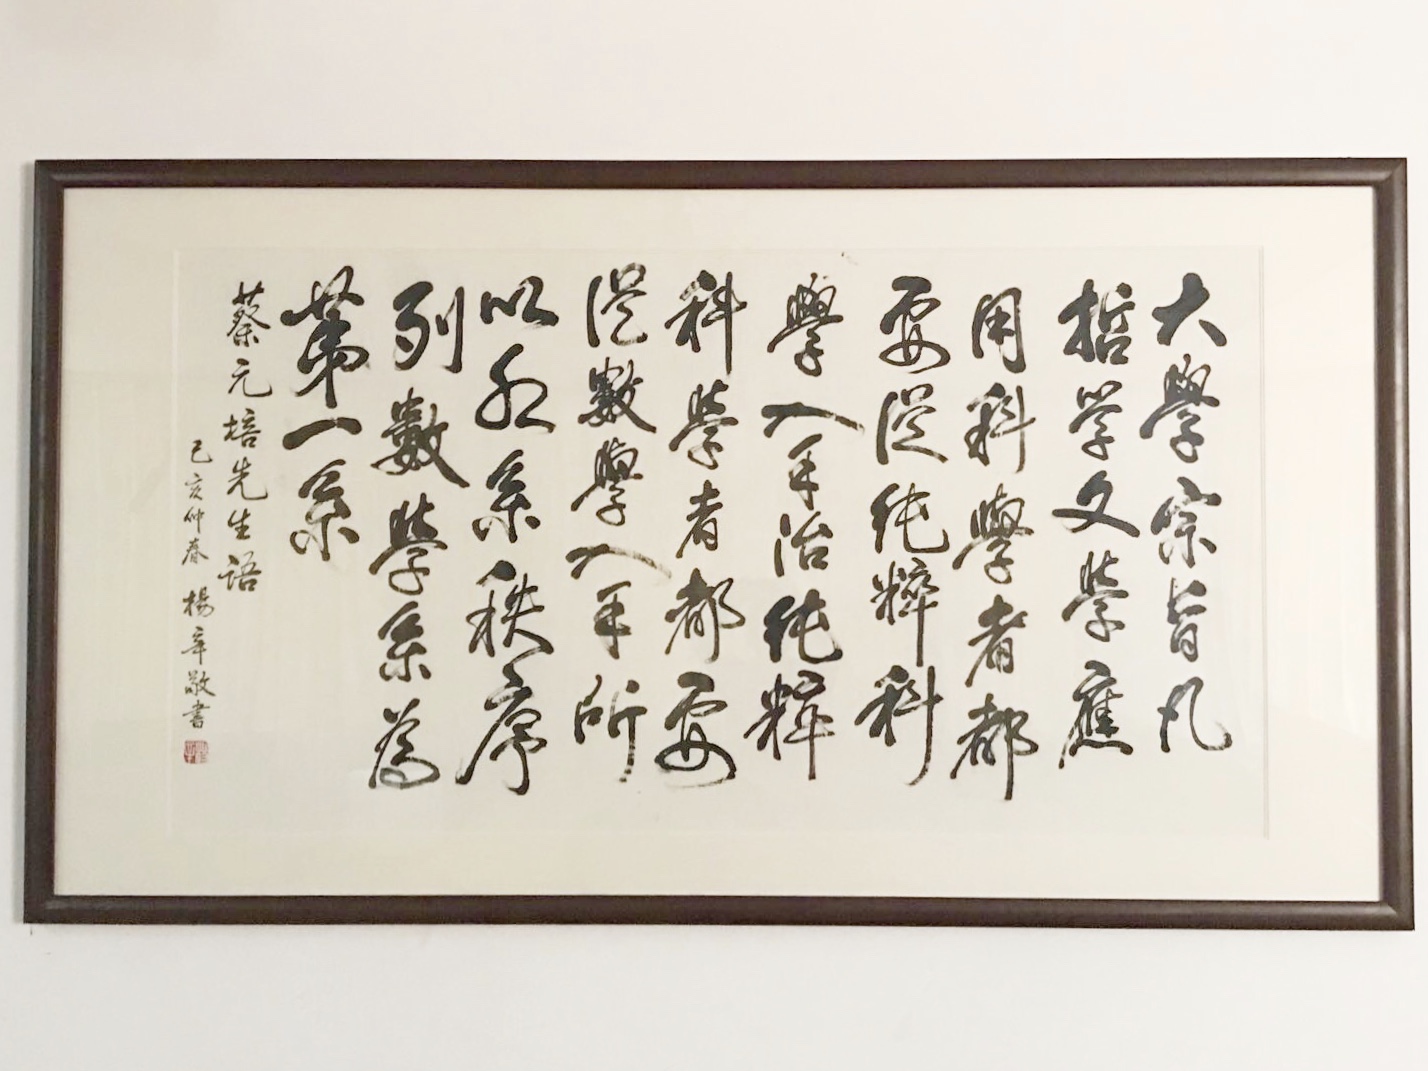 大學宗旨凡
哲学文學應
用科學者都
要從純粹科
學入手治純粹
科學者都要
從數學入手所
以各系秩序
列數學系為
第一系
蔡元培先生語
己亥仲春 楊辛敬書